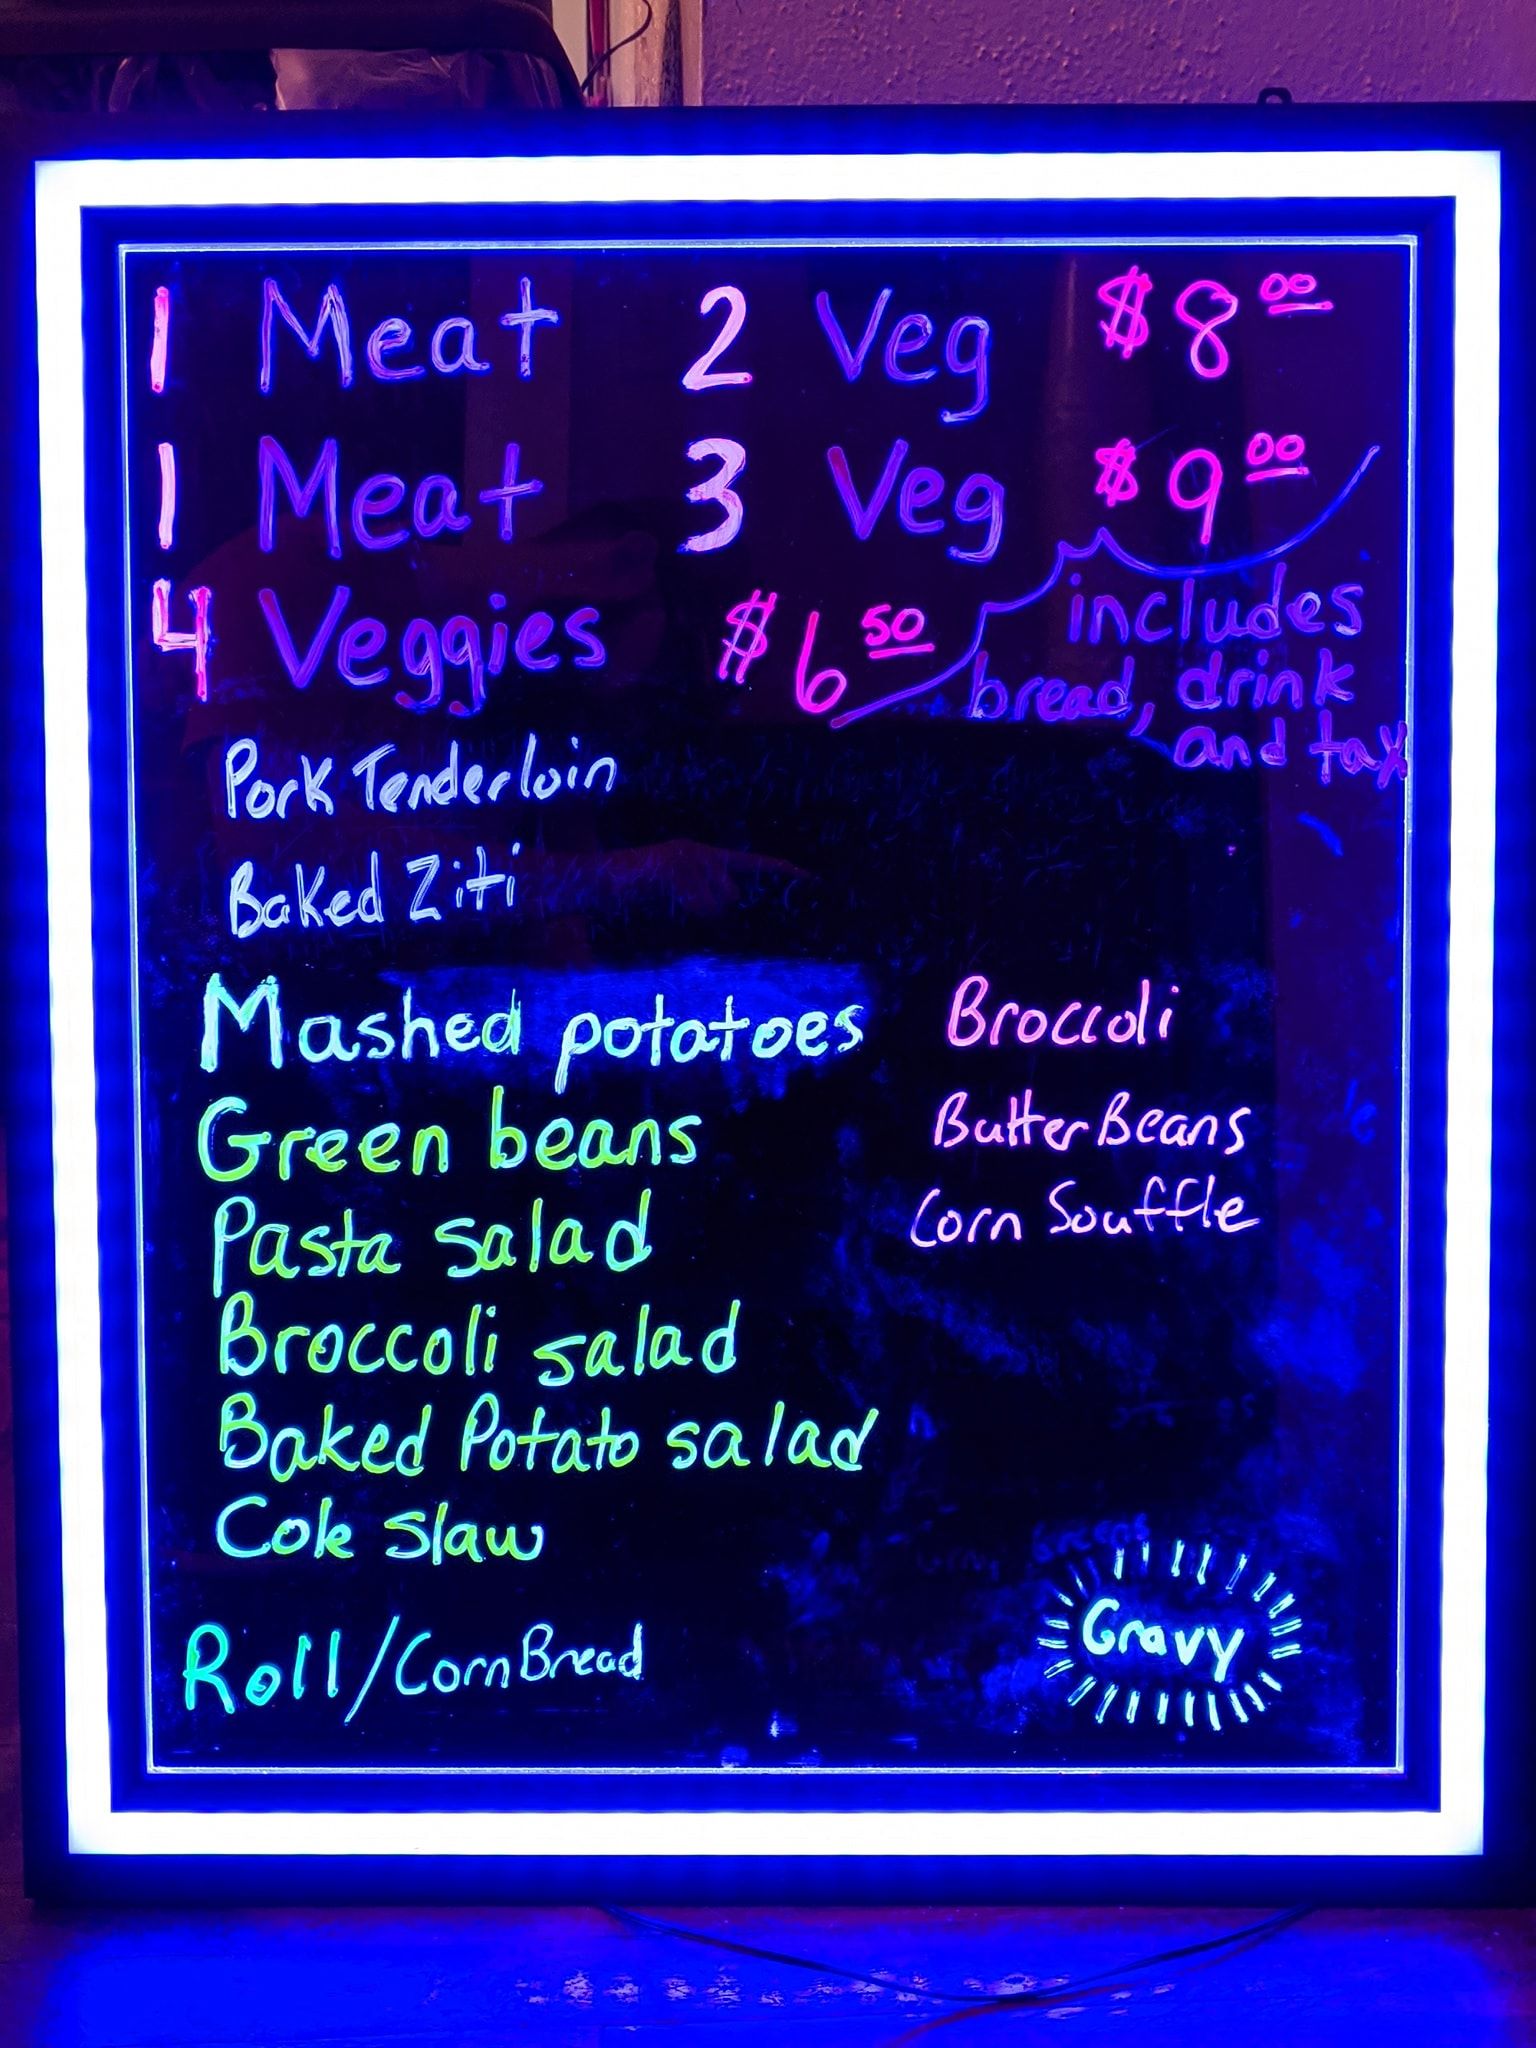 1 Meat 2 Veg $8.00
1 Meat 3 Veg $9.00
4 Veggies $6.50
includes
bread, drink
and tax
Pork Tenderloin
Baked Ziti
Mashed potatoes
Green beans
Pasta salad
Broccoli salad
Baked Potato salad
Cole slaw
Broccoli
Butter Beans
Corn Souffle
Roll/Corn Bread
Gravy